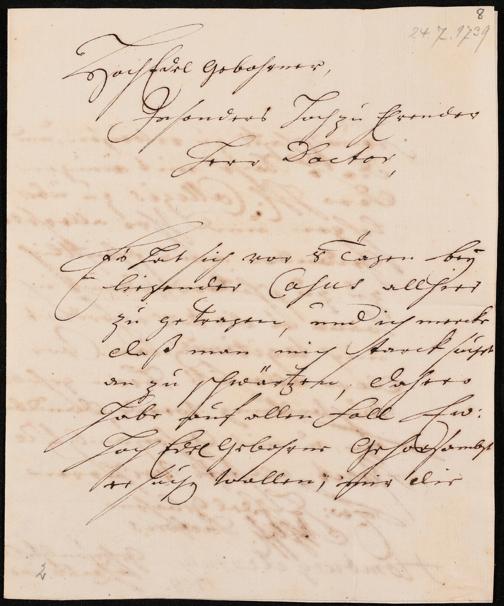 8
24.7.1739
HochEdel Gebohrner,
Besonders Hochzu Ehrender
Herr Doctor,
Es hat sich vor 8 Tagen bey
liegender Casus allhier
zu getragen, und ich mercke
daß man mich starck suchet
an zu schwärtzen, dahero
habe auf allen Fall Ew:
Hoch Edel Gebohrne Gehorsambst
ersuchen wollen, mir die
2